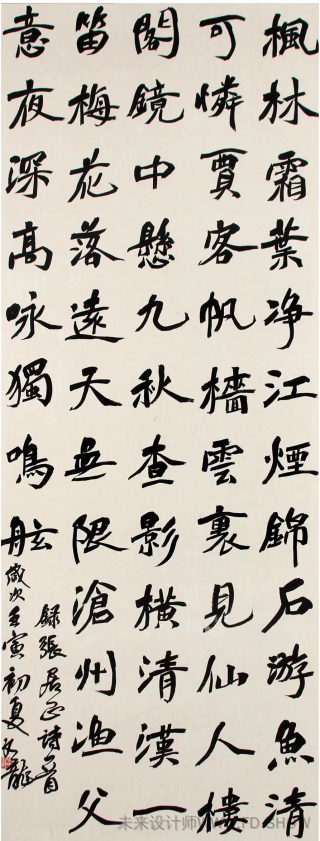 楓林霜葉净江煙錦石游魚清
可憐賈客帆檣雲裏見仙人樓
閣鏡中懸九秋查影橫清漢一
笛梅花落遠天無限滄州漁父
意夜深高咏獨鳴舷
錄張居正詩一首
歲次壬寅初夏龍
未来设计师